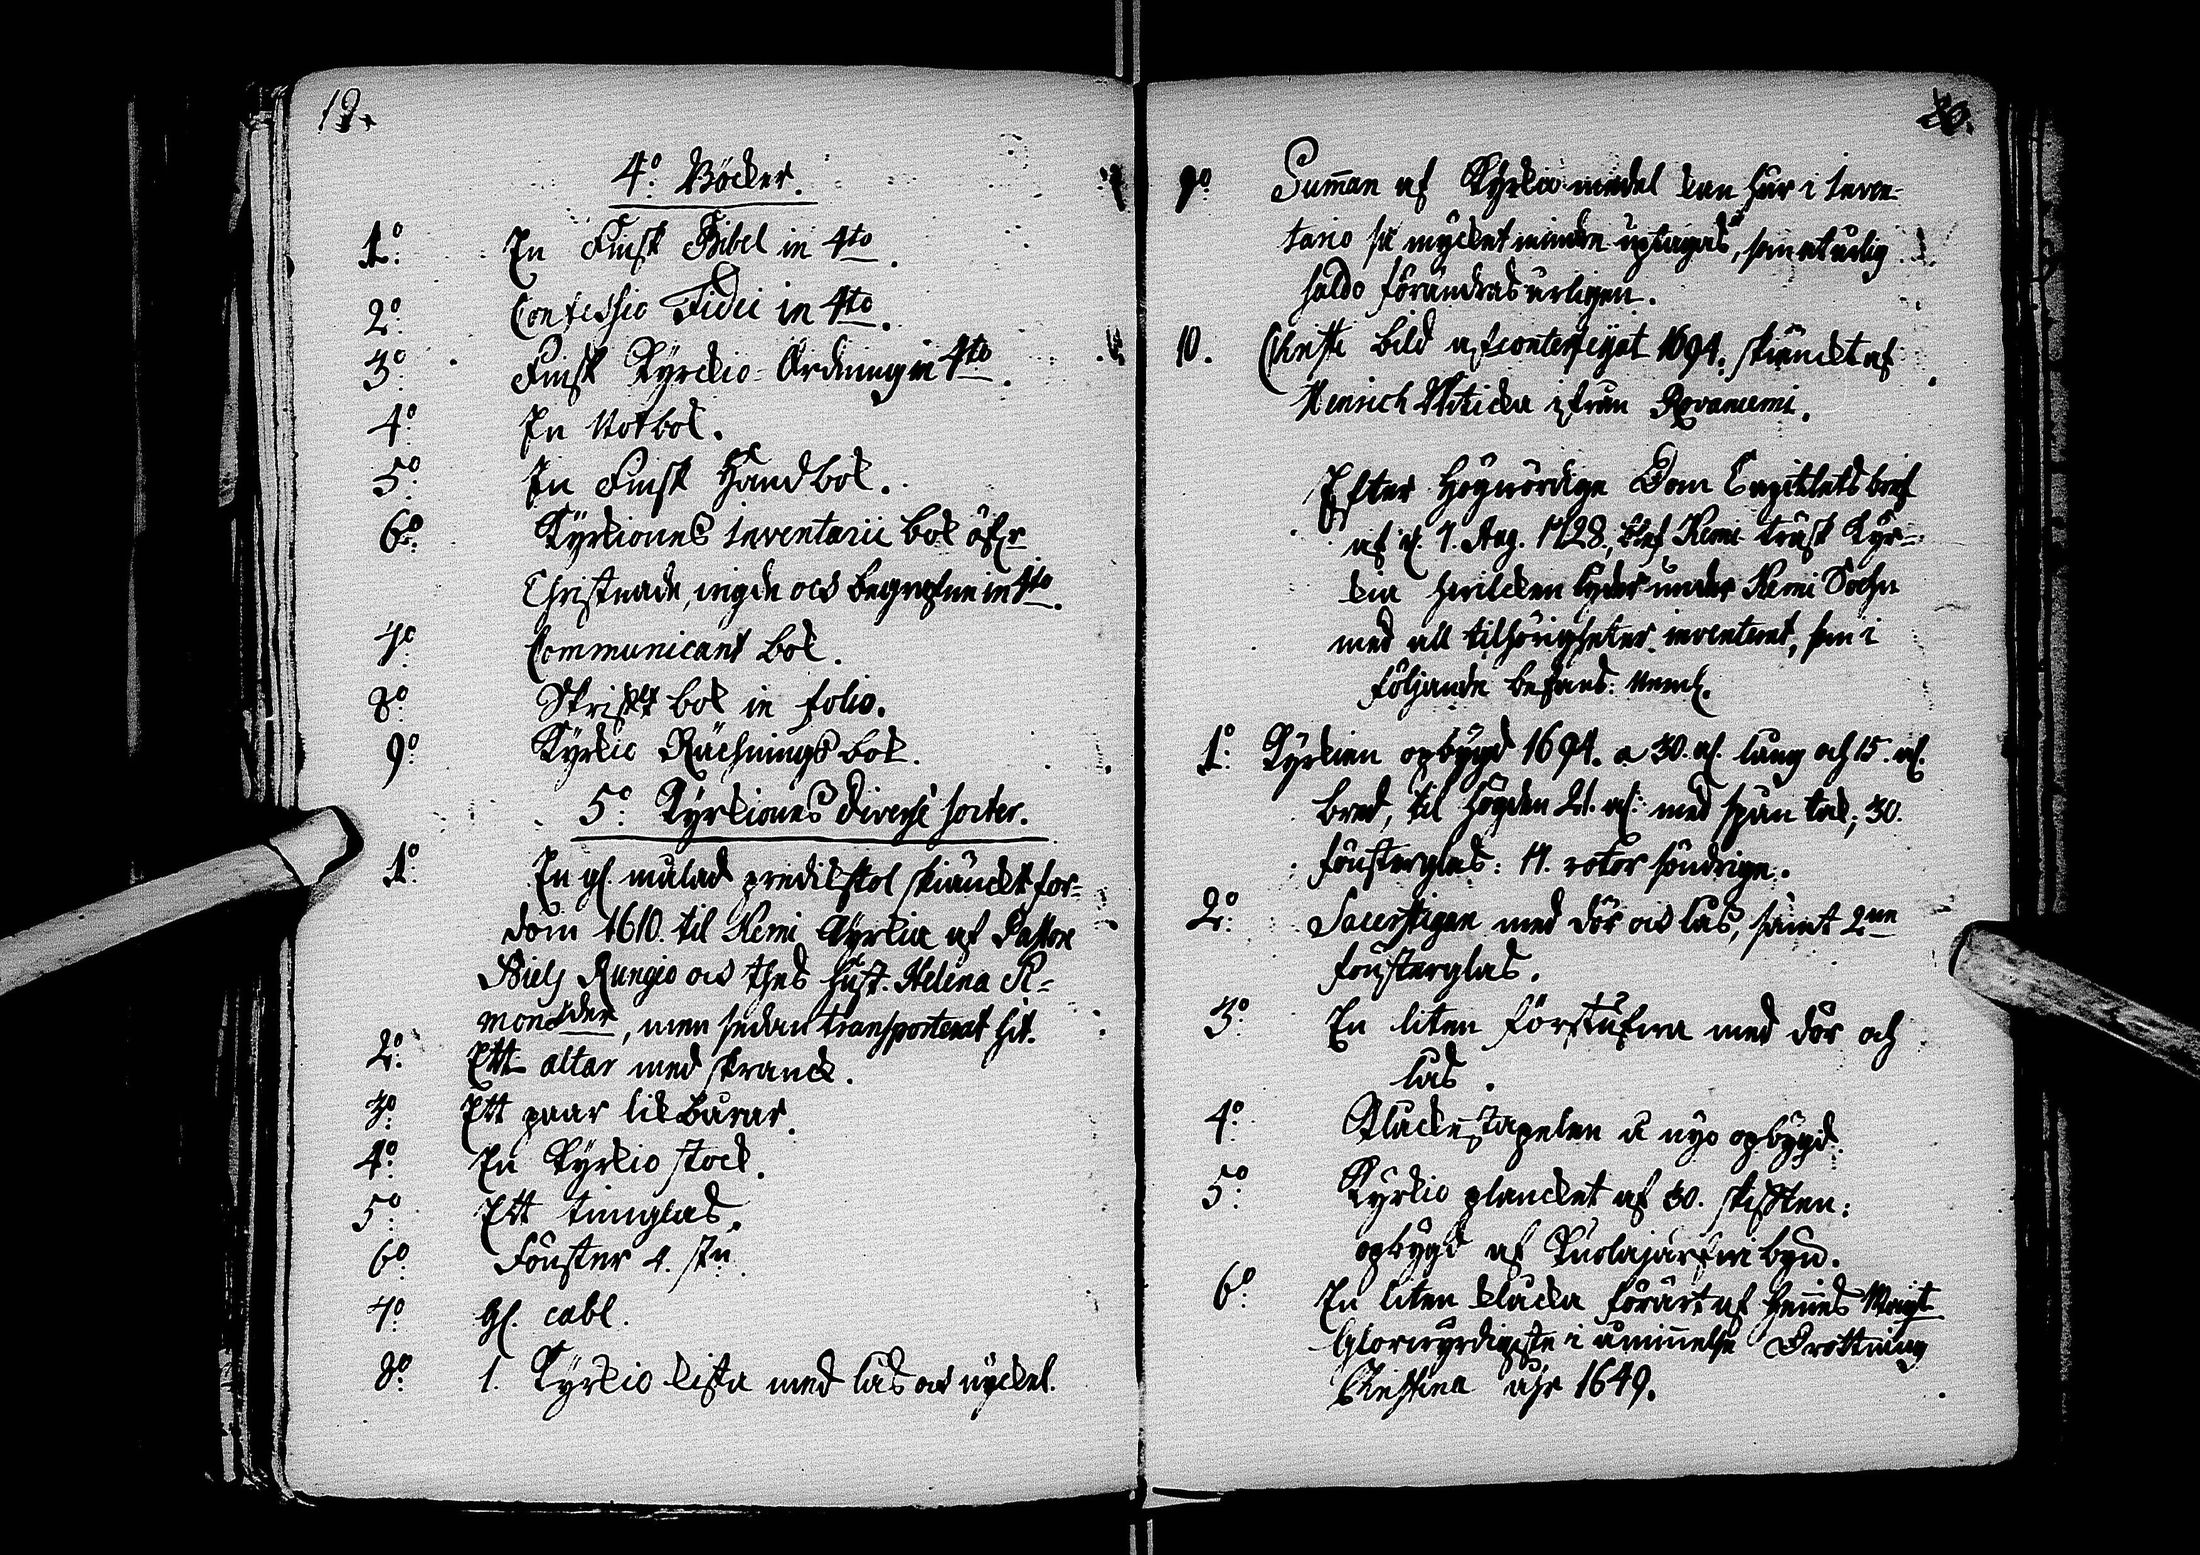 19.
4.º Böcker.
1.º En Finsk Bibel in 4to.
2.º Confessio Fidei in 4to.
3.º Finsk Kyrckio-Ordning in 4to.
4.º En Notbok.
5.º En Finsk Handbok.
6.º Kyrkiones Inventarii bok öfr
Christnade, wigde och begrafne in 4to.
7.º Communicant bok.
8.º Skrifft bok in folio.
9.º Kyrkio Rächnings bok.
5.º Kyrkiones diverse sorter.
1.º En gl. målad predikstol skiänckt for-
dom 1610. til Kemi Kyrkia af Pastore
Niels Rungio och thes hust. Helena
, men sedan transporterat hit.
2.º Ett altar med skranck.
3.º Ett paar likbårar.
4.º En Kyrkio stock.
5.º Ett timglas.
6.º Fönster 4. stn
7.º Gl. cabl.
8.º 1. Kyrkio kista med lås och nyckel.
9.º Suman af Kyrkio medel kan här i Inven-
tario så mycket mindre uptagas, som
saldo förändras årligen.
10. Christi bild afconterfeyat 1694. skiänckt af
Henrich ifrån Rovaniemi.
Efter Högwördige Dom Capitlets bref
af d. 7. Aug. 1728, blef Kemi träsk Kyr-
kia hwilcken lyder under Kemi Sochn
med all tilhörigheter inventerat, som i
följande befans: Neml.
1.º Kyrkien opbygd 1694. a 30. al. lång och 15. al.
bred, til högden 21. al. med spån tak; 30.
fönsterglas: 17. rotor söndrige.
2.º Sacerstigan med dör och lås, samt 2ne
fönsterglas.
3.º En liten förstufwa med dör och
lås.
4.º Klåckestapelen å nyo opbygd.
5.º Kyrkio plancket af 30. skifften:
opbygd af Kuolajärfwi byn.
6.º En liten klåcka förärt af hennes Mayt
Glorwyrdigste i åminnelse Drottning
Christina åhr 1649.